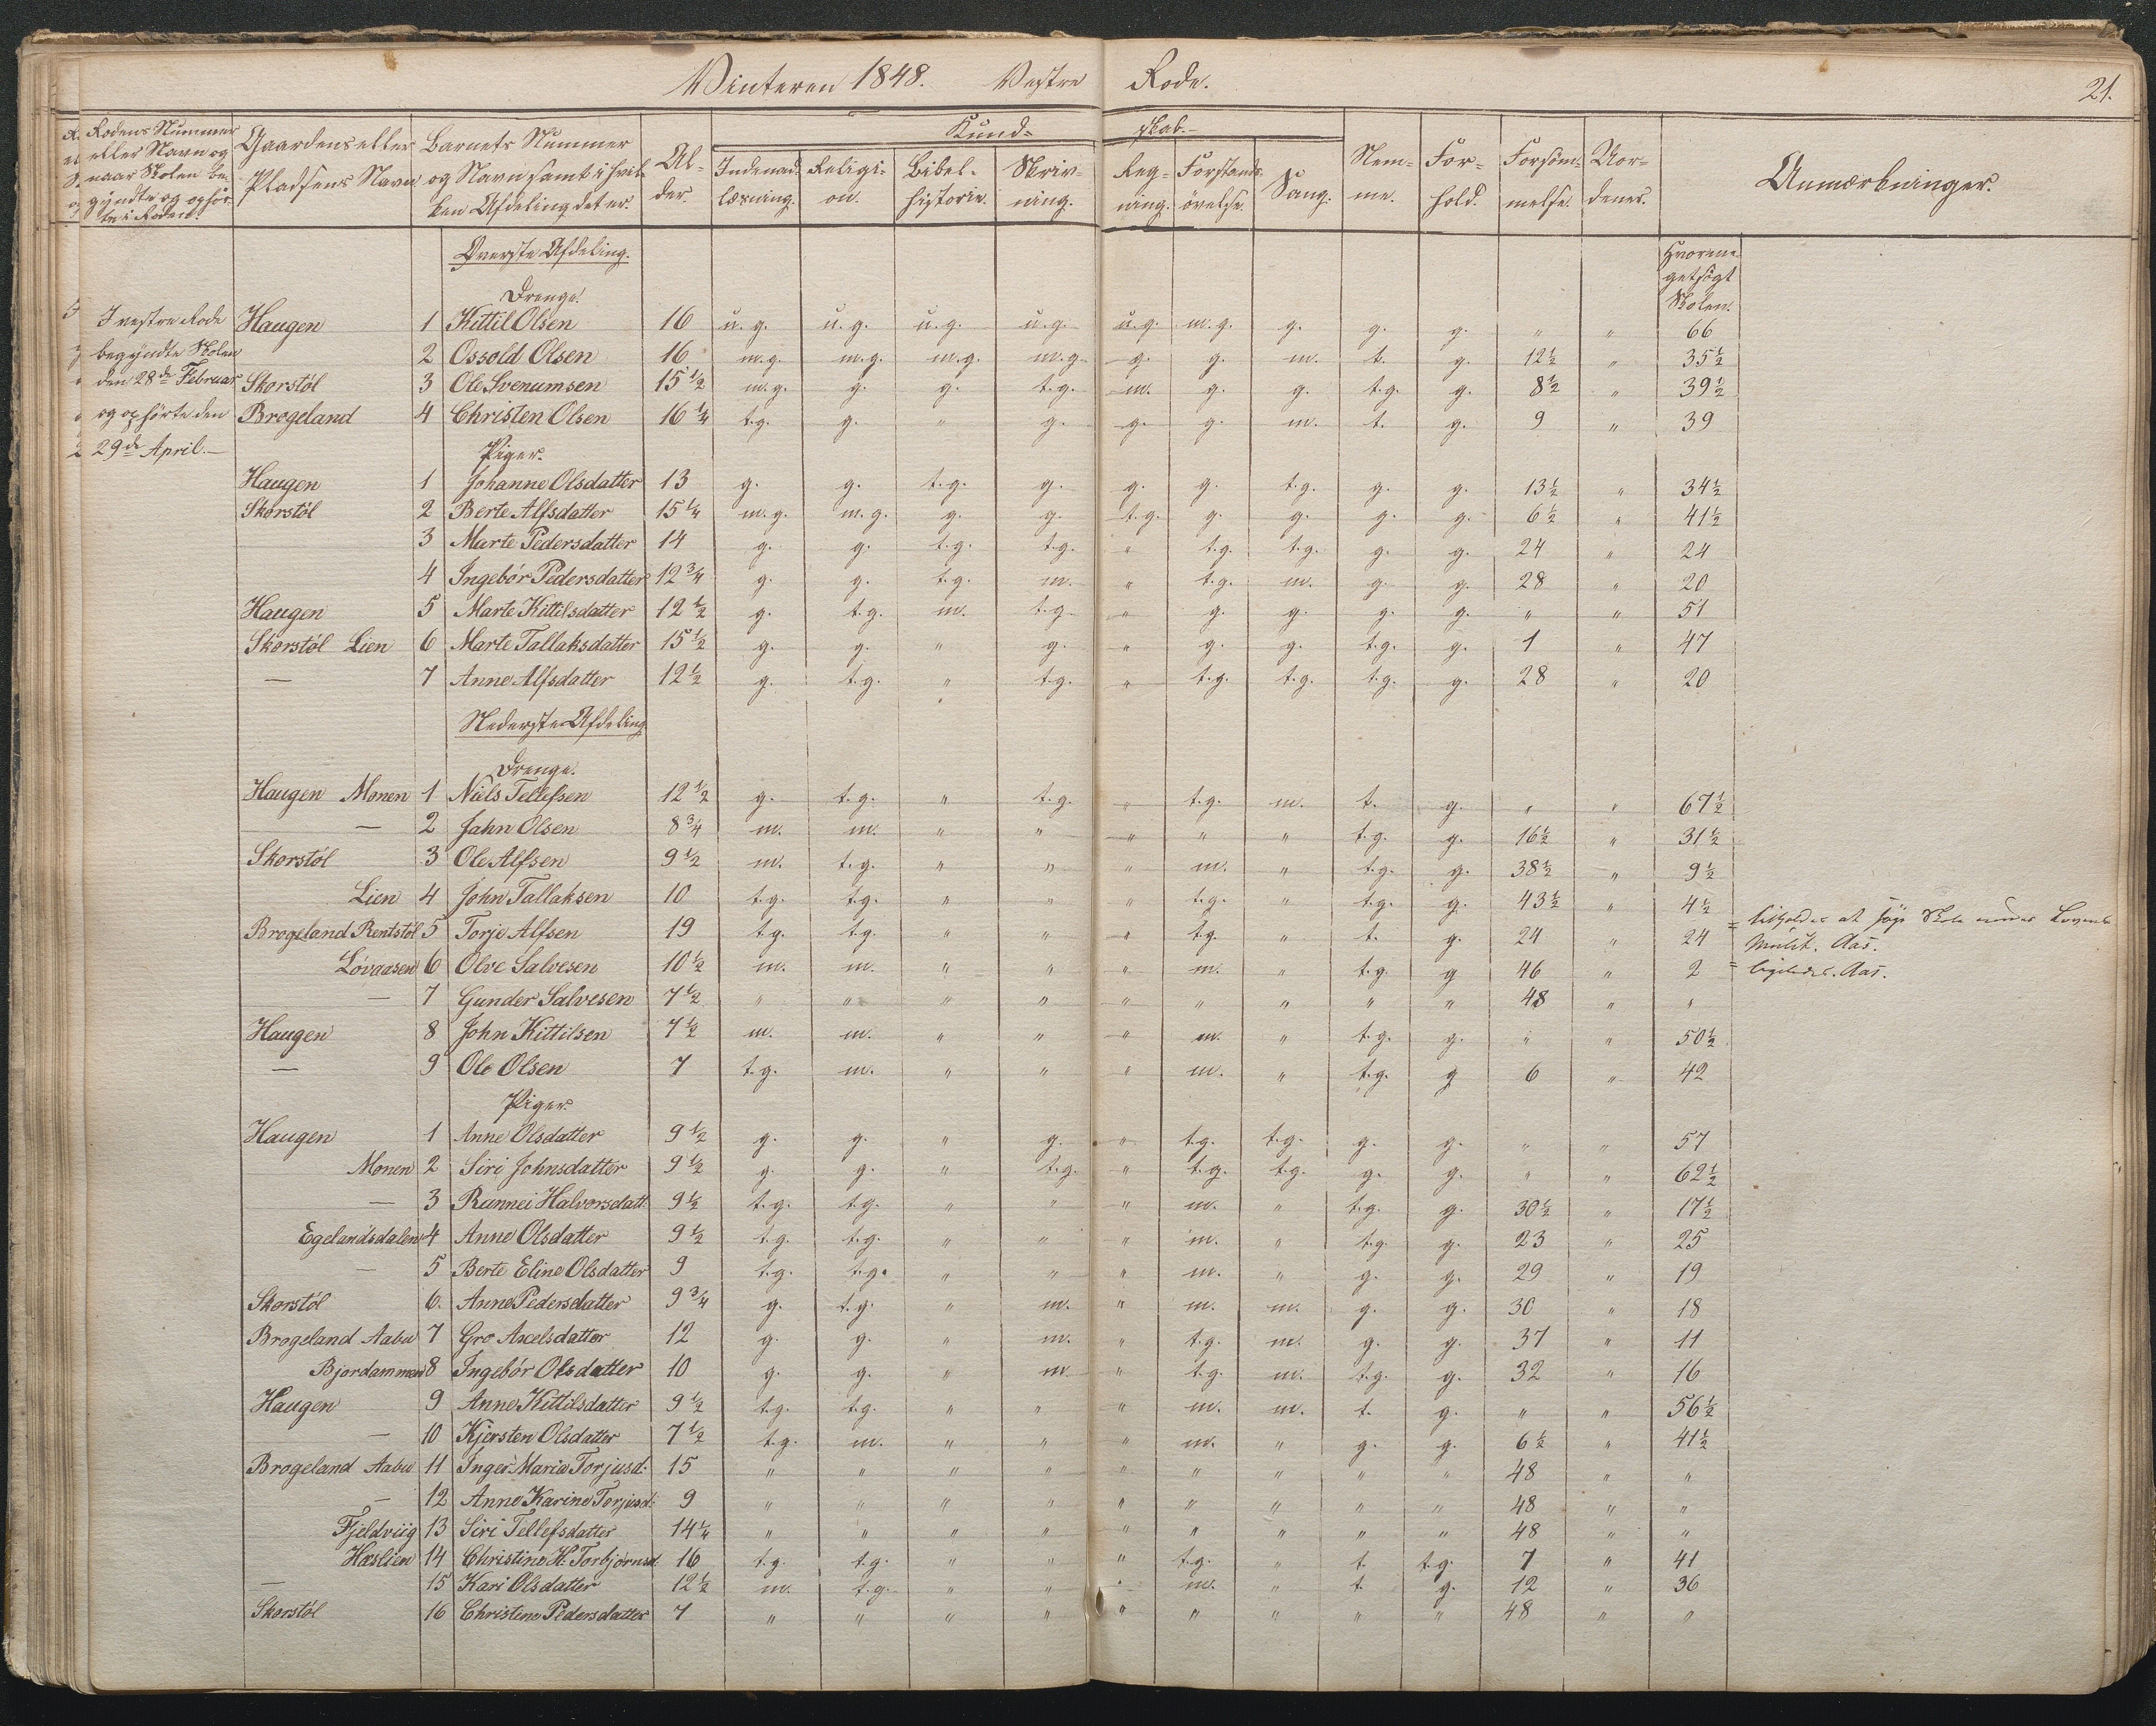 Vinteren 1848. Vestre Rode. 21.
Rodens Nummer eller Navn og naar Skolen begyndte og ophørte i Roden. | Gaardens eller Pladsens Navn | Barnets Nummer og Navn samt i hvilken Afdeling det er. | Alder. | Kundskab.- | Nemme. | Forhold. | Forsömmelse. | Uordener. | Anmærkninger.
Indenadlæsning. | Religion. | Bibelhistorie. | Skrivning. | Regning. | Forstandsövelse. | Sang.
Øverste Afdeling. | Hvormeget søgt Skolen.
Drenge.
I vestre Rode | Haugen | 1 | Kittil Olsen | 16 | u. g. | u. g. | u. g. | u. g. | u. g. | m. g. | g. | g. | g. | " | " | 66
begyndte Skolen | 2 | Ossold Olsen | 16 | m. g. | m. g. | m. g. | m. g. | g. | g. | m. | t. | g. | 12½ | " | 35½
den 28de Februar | Skorstöl | 3 | Ole Svenumsen | 15½ | m. g. | g. | g. | t. g. | m. | g. | g. | t. g. | g. | 8½ | " | 39½
og ophörte den | Brogeland | 4 | Christen Olsen | 16¼ | t. g. | g. | " | g. | g. | g. | m. | t. | g. | 9 | " | 39
29de April.-
Piger.
Haugen | 1 | Johanne Olsdatter | 13 | g. | g. | t. g. | g. | g. | g. | t. g. | g. | g. | 13½ | " | 34½
Skorstöl | 2 | Berte Alfsdatter | 15¼ | m. g. | m. g. | g. | g. | t. g. | g. | g. | g. | g. | 6½ | " | 41½
3 | Marte Pedersdatter | 14 | g. | g. | t. g. | t. g. | " | t. g. | t. g. | g. | g. | 24 | " | 24
4 | Ingebör Pedersdatter | 12¾ | g. | g. | t. g. | m. | " | t. g. | m. | g. | g. | 28 | " | 20
Haugen | 5 | Marte Kittilsdatter | 12½ | g. | t. g. | m. | t. g. | " | g. | g. | g. | g. | " | " | 51
Skorstöl Lien | 6 | Marte Tallaksdatter | 15½ | g. | g. | " | g. | " | g. | g. | t. g. | g. | 1 | " | 47
— | 7 | Anne Alfsdatter | 12½ | g. | t. g. | " | t. g. | " | t. g. | t. g. | t. g. | g. | 28 | " | 20
Nederste Afdeling
Drenge.
Haugen Monen | 1 | Niels Tellefsen | 12½ | g. | t. g. | " | t. g. | " | t. g. | m. | t. | g. | " | " | 67½
— | 2 | Jahn Olsen | 8¾ | m. | m. | " | " | " | " | " | t. g. | g. | 16½ | " | 31½
Skorstöl | 3 | Ole Alfsen | 9½ | m. | t. g. | " | " | " | m. | " | t. g. | g. | 38½ | " | 9½
Lien | 4 | John Tallaksen | 10 | t. g. | t. g. | " | " | " | t. g. | " | t. g. | g. | 43½ | " | 4½
Brogeland Rentstöl | 5 | Torje Alfsen | 19 | t. g. | t. g. | " | " | " | t. g. | " | t. | g. | 24 | " | 24 | = tilholdes at søge Skole under Lovens Mulct. Aas.
Lövaasen | 6 | Olve Salvesen | 10½ | m. | m. | " | " | " | m. | " | t. g. | g | 46 | " | 2 | = ligeledes. Aas.
— | 7 | Gunder Salvesen | 7½ | " | " | " | " | " | " | " | " | " | 48 | " | "
Haugen | 8 | John Kittilsen | 7½ | m. | m. | " | " | " | m. | " | t. g. | g. | " | " | 50½
— | 9 | Ole Olsen | 7 | t. g. | m. | " | " | " | m. | " | t. g. | g | 6 | " | 42
Piger.
Haugen | 1 | Anne Olsdatter | 9½ | g. | g. | " | g. | " | t. g. | t. g. | g. | g. | " | " | 57
Monen | 2 | Siri Johnsdatter | 9½ | g. | g. | " | t. g. | " | t. g. | t. g. | g. | g. | " | " | 62½
— | 3 | Rannei Halvorsdatt. | 9½ | t. g. | t. g. | " | " | " | m. | " | t. g. | g. | 30½ | " | 17½
Egelandsdalen | 4 | Anne Olsdatter | 9½ | t. g. | t. g. | " | " | " | m. | " | t. g. | g. | 23 | " | 25
— | 5 | Berte Eline Olsdatter | 9 | t. g. | t. g. | " | " | " | m. | " | g. | g. | 29 | " | 19
Skorstöl | 6. | Anne Pedersdatter | 9¾ | g. | t. g. | " | m. | " | m. | m. | g. | g. | 30 | " | 18
Brogeland Aabu | 7 | Gro Axelsdatter | 12 | g. | g. | " | m. | " | t. g. | m. | g. | g. | 37 | " | 11
Bjordammen | 8 | Ingebör Olsdatter | 10 | g. | g. | " | m | " | t. g. | m. | t. g. | g. | 32 | " | 16
Haugen | 9 | Anne Kittilsdatter | 9½ | t. g. | t. g. | " | " | " | m. | m. | t. | g. | " | " | 56½
— | 10 | Kjersten Olsdatter | 7½ | t. g. | m. | " | " | " | m. | " | g. | g. | 6½ | " | 41½
Brogeland Aabu | 11 | Inger Maria Torjusd: | 15 | " | " | " | " | " | " | " | " | " | 48 | " | "
— | 12 | Anne Karine Torjusd: | 9 | " | " | " | " | " | " | " | " | " | 48 | " | "
Fjeldviig | 13 | Siri Tellefsdatter | 14¼ | " | " | " | " | " | " | " | " | " | 48 | " | "
Hæslien | 14 | Christine H: Torbjörnsd. | 16 | t. g. | t. g. | " | " | " | t. g. | " | t. | t. g. | 7 | " | 41
— | 15 | Kari Olsdatter | 12½ | m. | t. g. | " | " | " | m. | " | t. | g. | 12 | " | 36
Skorstöl | 16 | Christine Pedersdatter | 7 | " | " | " | " | " | " | " | " | " | 48 | " | "